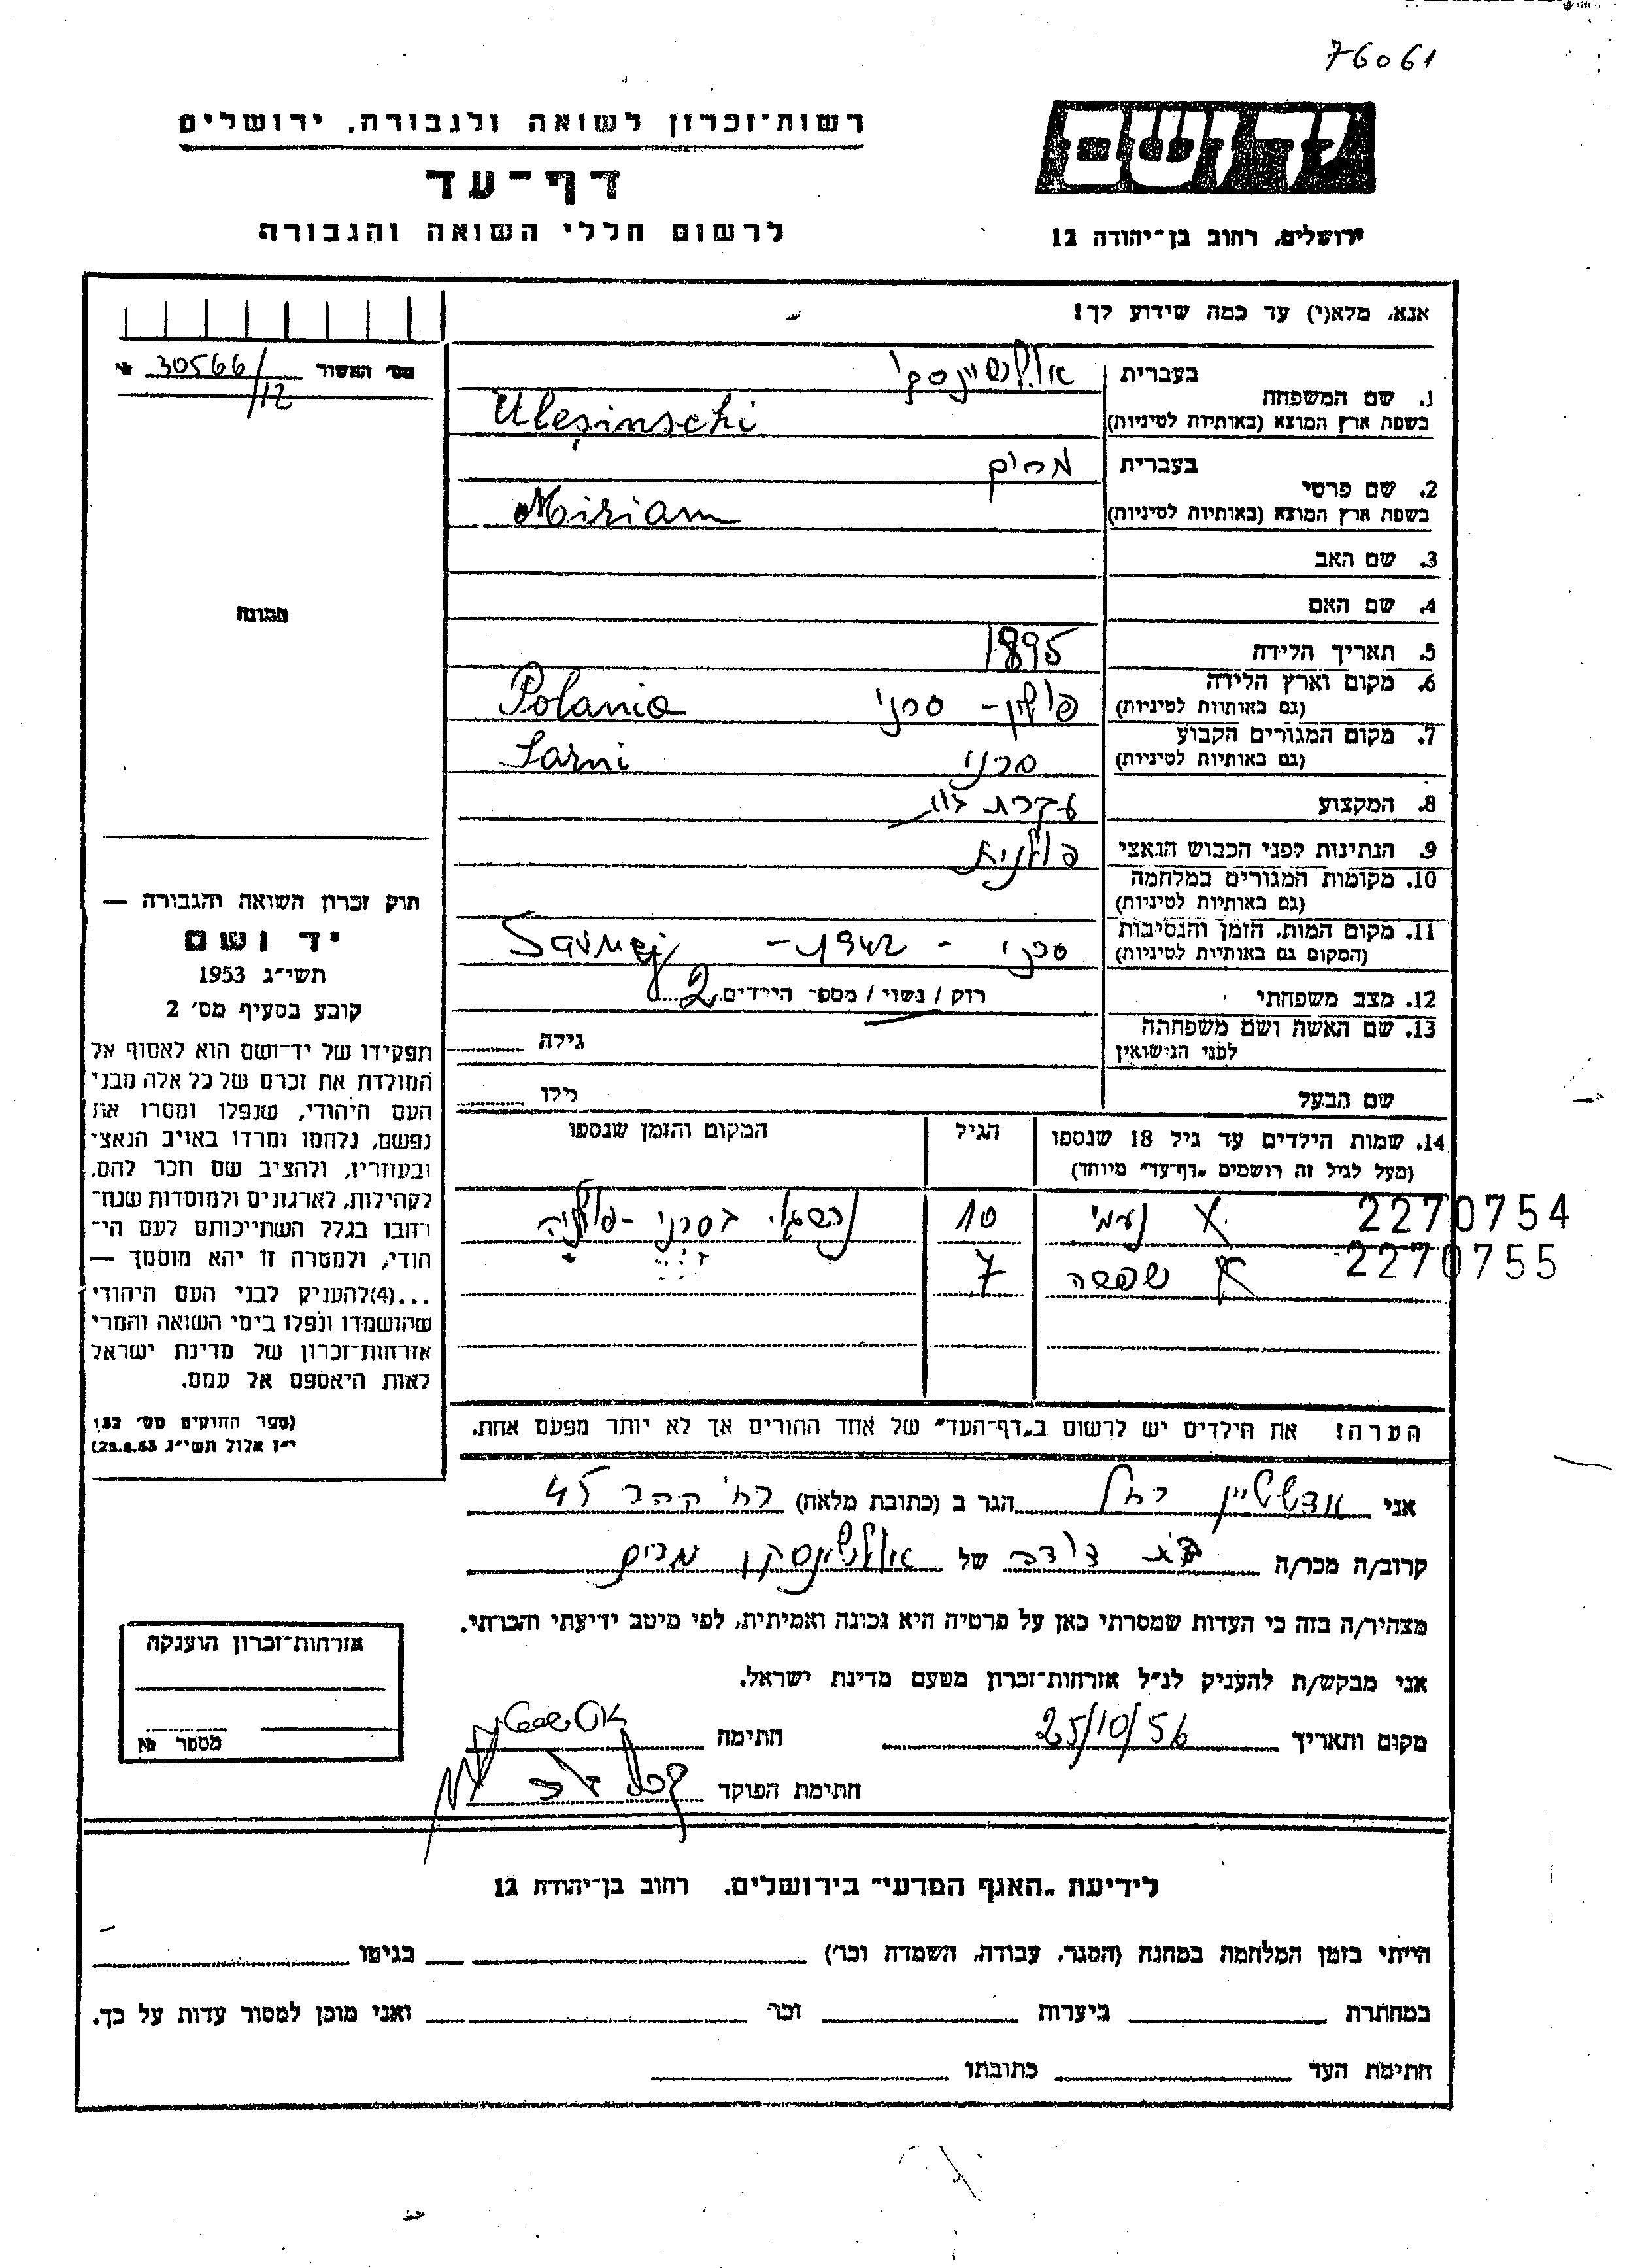 76061
יד ושם
ירושלים, רחוב בן־יהודה 12
רשות־זכרון לשואה ולגבורה, ירושלים
דף־עד
לרשום חללי השואה והגבורה
אנא, מלא(י) עד כמה שידוע לך!
מס׳ האשור 30566/12 №
1. שם המשפחה
בעברית
בשפת ארץ המוצא (באותיות לטיניות) Uleşinschi
2. שם פרטי
בעברית מרים
בשפת ארץ המוצא (באותיות לטיניות) Miriam
3. שם האב
4. שם האם
5. תאריך הלידה 1895
6. מקום וארץ הלידה
(גם באותיות לטיניות) פולין – סרני Polania
7. מקום המגורים הקבוע
(גם באותיות לטיניות) סרני Sarni
8. המקצוע עקרת בית
9. הנתינות לפני הכבוש הנאצי פולנית
10. מקומות המגורים במלחמה
(גם באותיות לטיניות)
11. מקום המות, הזמן והנסיבות
(המקום גם באותיות לטיניות) סרני – 1942 –
12. מצב משפחתי רוק / נשוי / מספר הילדים 2
13. שם האשה ושם משפחתה
לפני הנישואין גילה
שם הבעל גילו
14. שמות הילדים עד גיל 18 שנספו הגיל המקום והזמן שנספו
(מעל לגיל זה רושמים „דף־עד״ מיוחד)
2270754 נעמי 10 בסרני – פולניה
2270755 7
הערה! את הילדים יש לרשום ב„דף־העד״ של אחד ההורים אך לא יותר מפעם אחת.
תמונה
חוק זכרון השואה והגבורה —
יד ושם
תשי״ג 1953
קובע בסעיף מס׳ 2
תפקידו של יד־ושם הוא לאסוף אל
המולדת את זכרם של כל אלה מבני
העם היהודי, שנפלו ומסרו את
נפשם, נלחמו ומרדו באויב הנאצי
ובעוזריו, ולהציב שם וזכר להם,
לקהילות, לארגונים ולמוסדות שנח־
רבו בגלל השתייכותם לעם הי־
הודי, ולמטרה זו יהא מוסמך —
...(4)להעניק לבני העם היהודי
שהושמדו ונפלו בימי השואה והמרי
אזרחות־זכרון של מדינת ישראל
לאות היאספם אל עמם.
(ספר החוקים מס׳ 132,
י״ז אלול תשי״ג 28.8.53)
אני רחל הגר ב (כתובת מלאה) רח׳ 45
קרוב/ה מכר/ה בת דודה של מרים
מצהיר/ה בזה כי העדות שמסרתי כאן על פרטיה היא נכונה ואמיתית, לפי מיטב ידיעתי והכרתי.
אני מבקש/ת להעניק לנ״ל אזרחות־זכרון מטעם מדינת ישראל.
מקום ותאריך 25/10/56 חתימה
חתימת הפוקד
אזרחות־זכרון הוענקה
מספר №
לידיעת „האגף המדעי״ בירושלים, רחוב בן־יהודה 12
הייתי בזמן המלחמה במחנה (הסגר, עבודה, השמדה וכר׳) בגיטו
במחתרת ביערות וכר׳ ואני מוכן למסור עדות על כך.
חתימת העד כתובתו